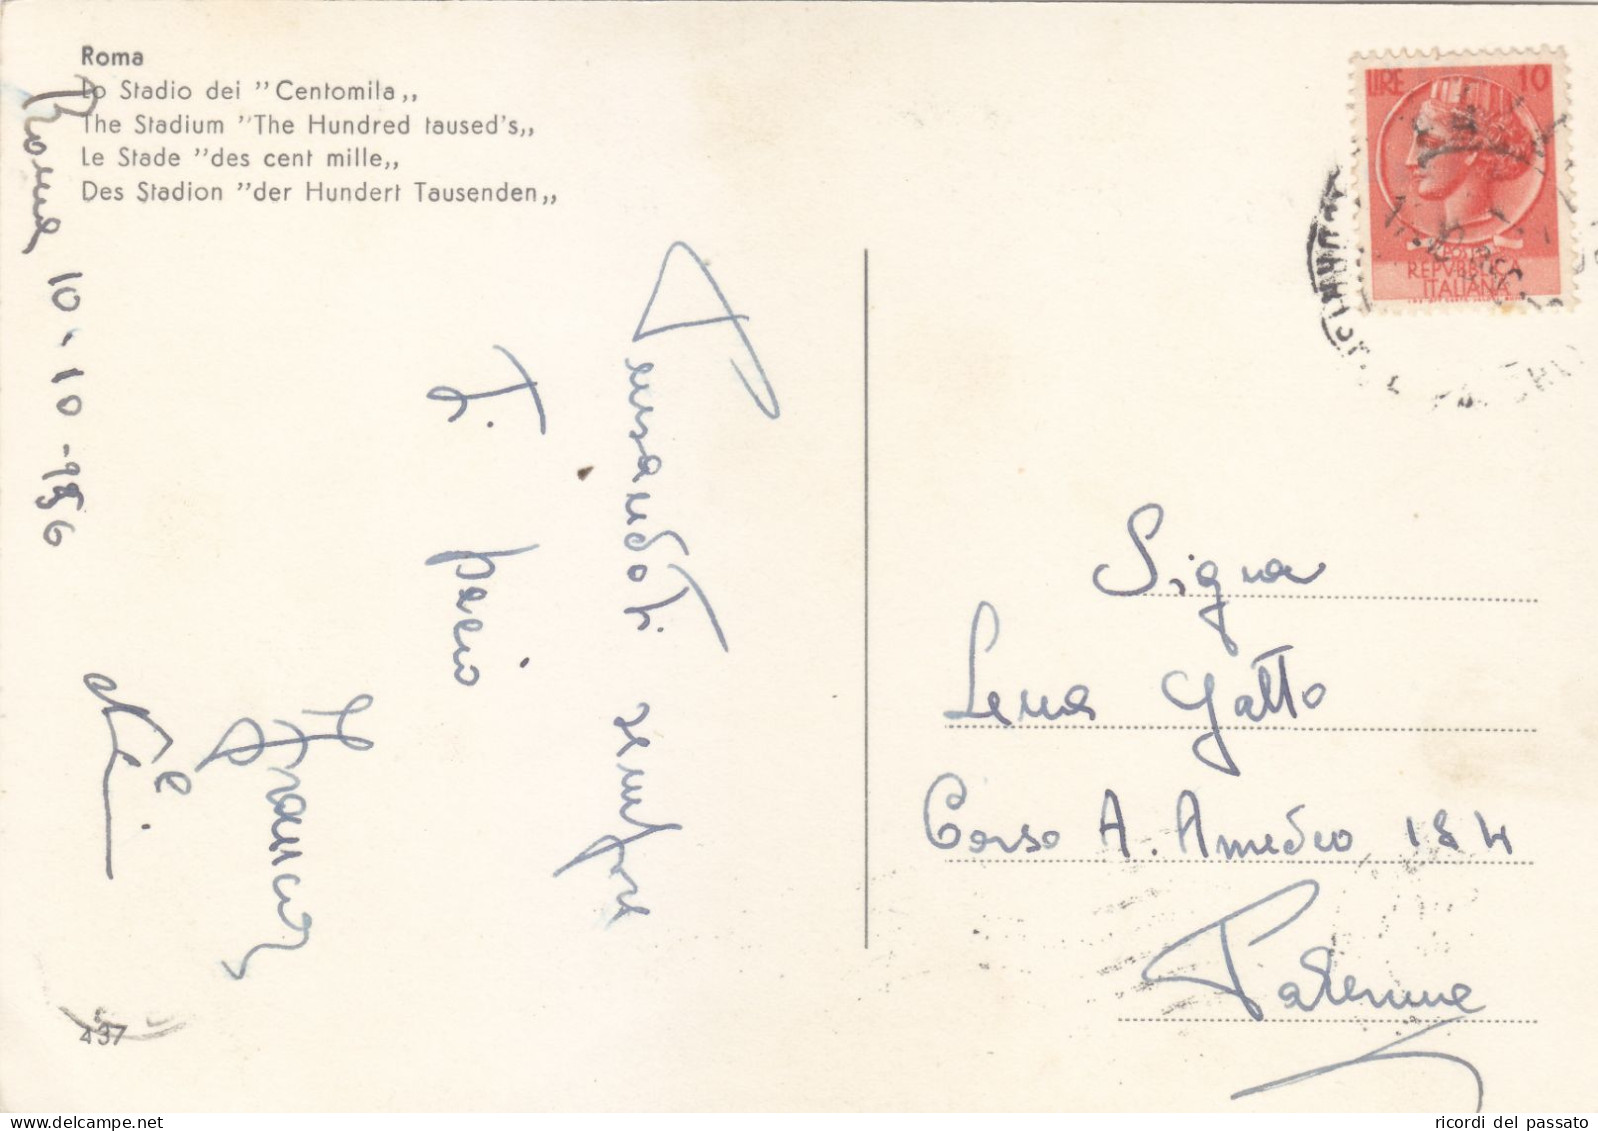 Roma
Lo Stadio dei "Centomila„
The Stadium "The Hundred taused's„
Le Stade "des cent mille„
Des Stadion "der Hundert Tausenden„
Roma 10-10-956
Pensandoti sempre
Ti bacio
Franco
e
437
LIRE 10
POSTE
REPVBBLICA
ITALIANA
Sigra
Lena Gatto
Corso A. Amedeo 184
Palermo
ricordi del passato